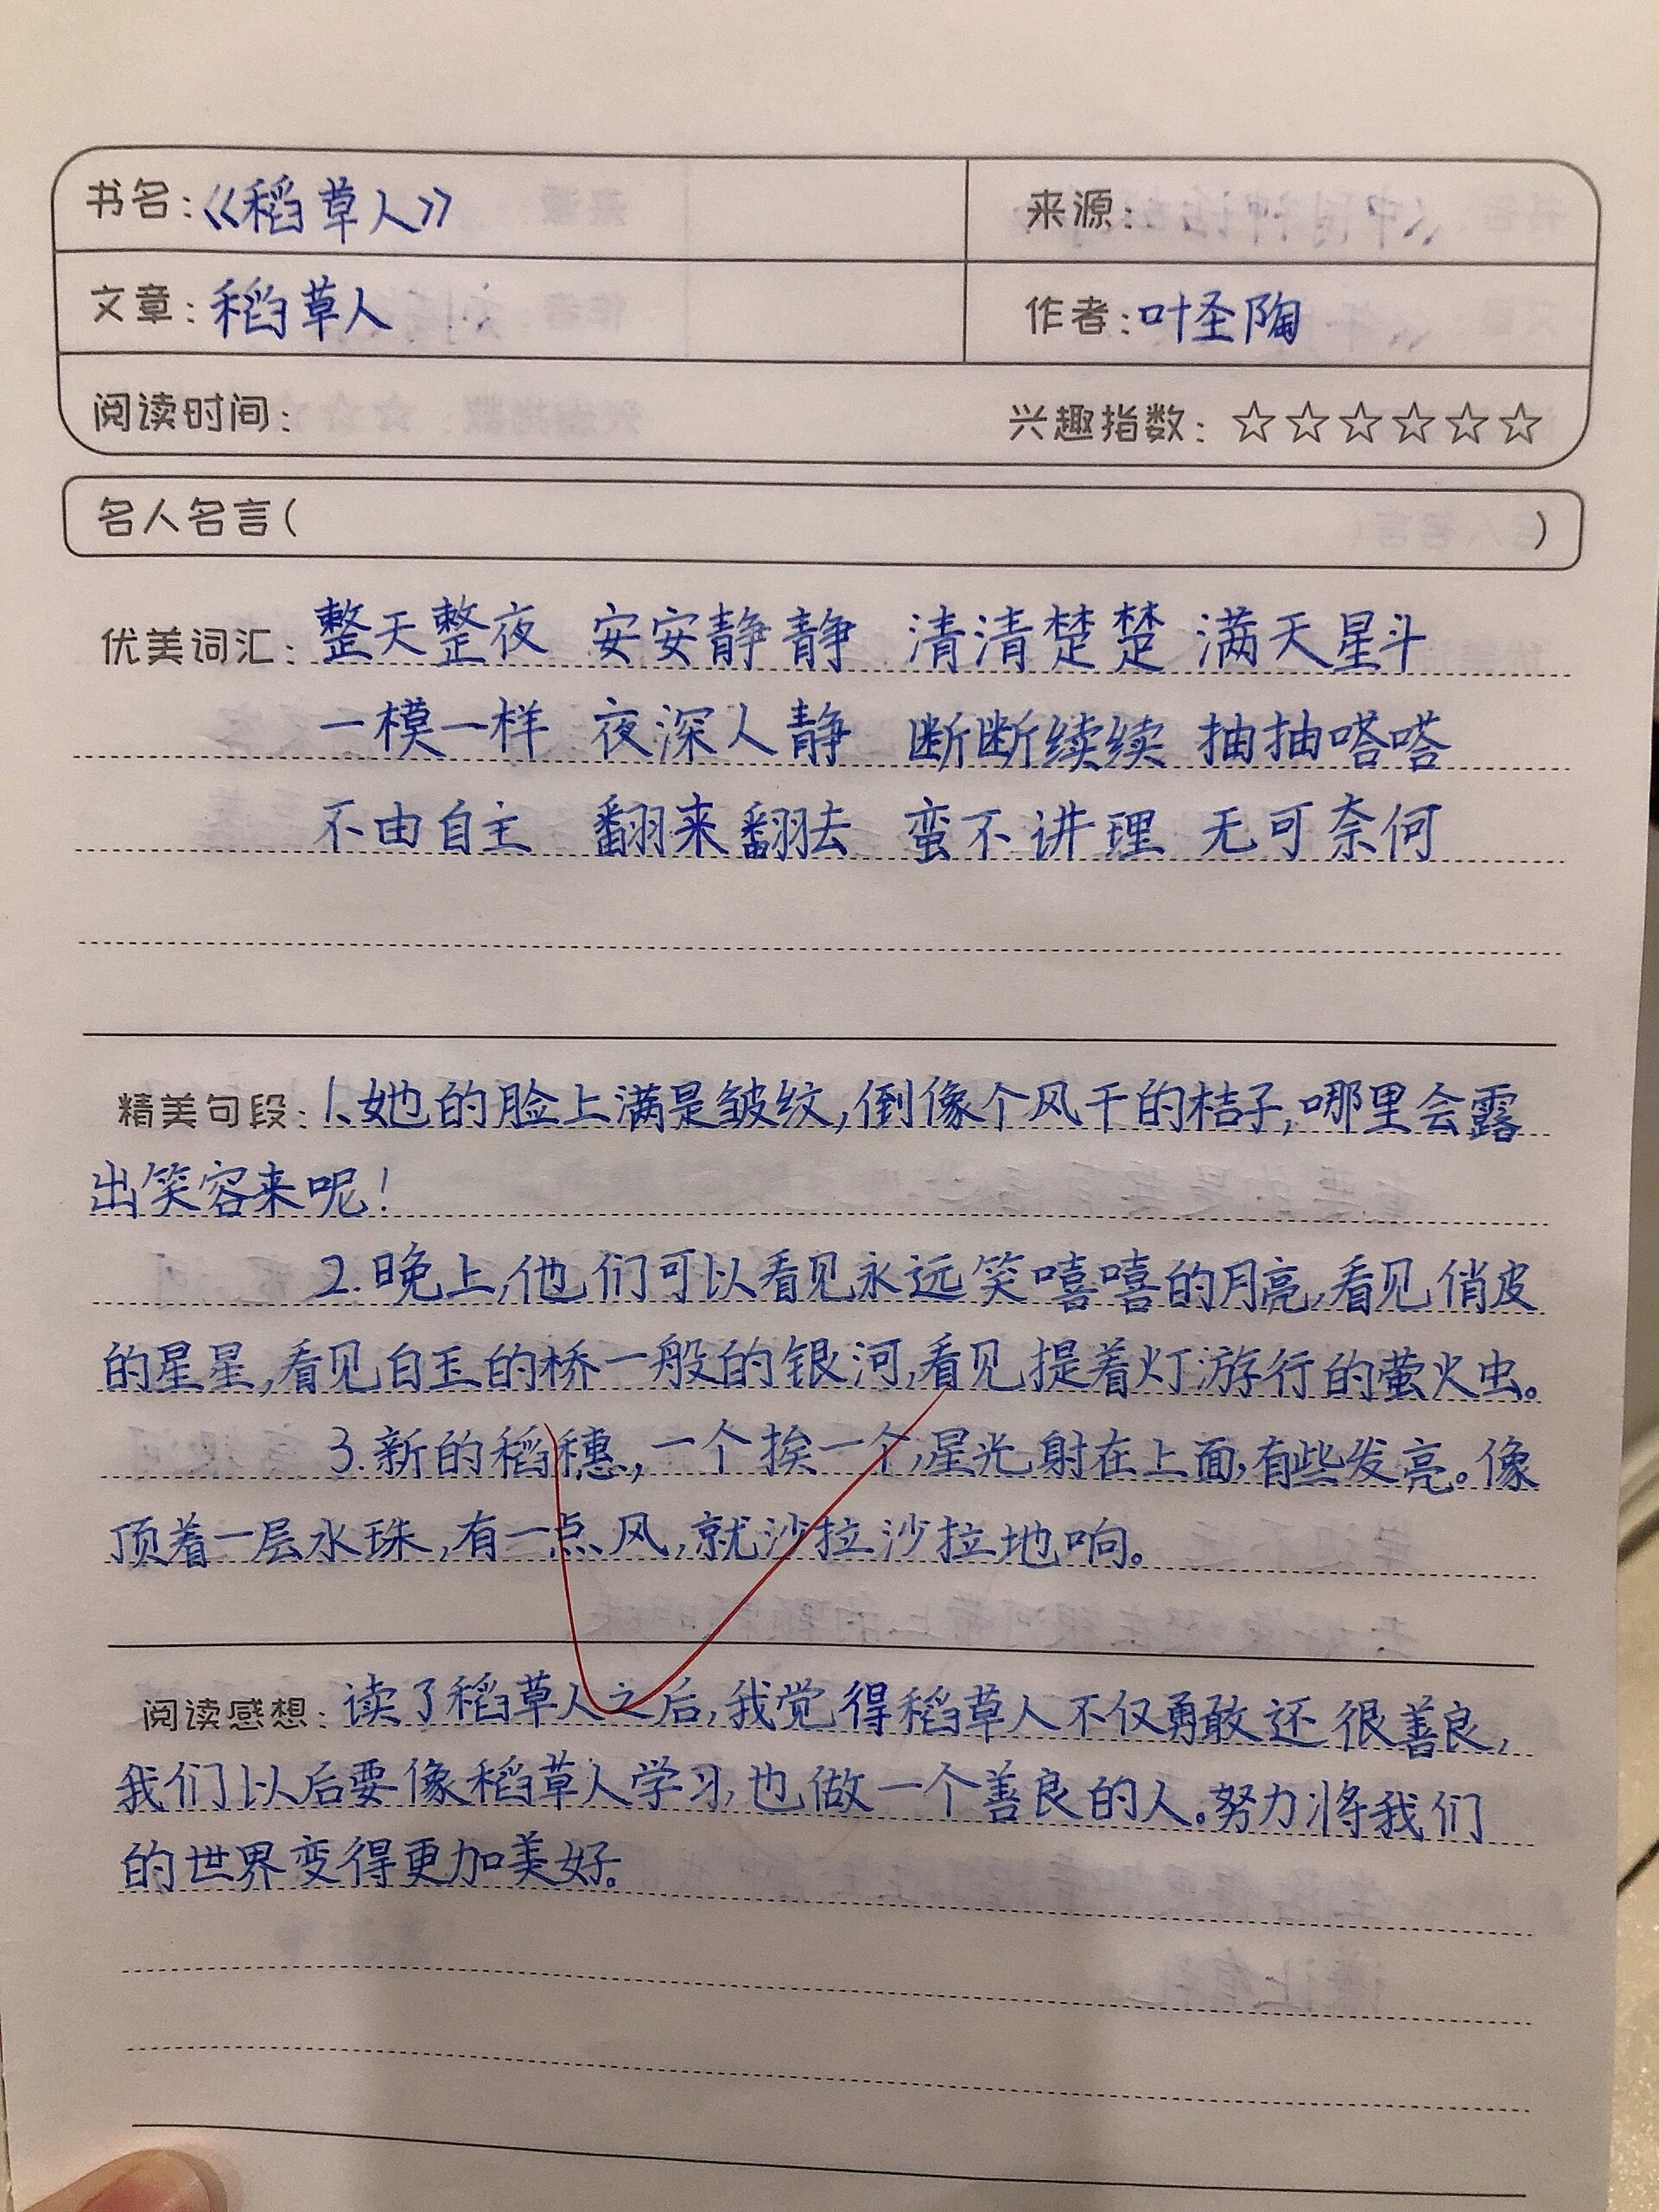 书名：《稻草人》 来源：
文章：稻草人 作者：叶圣陶
阅读时间： 兴趣指数：☆☆☆☆☆☆
名人名言（ ）
优美词汇：整天整夜 安安静静 清清楚楚 满天星斗
一模一样 夜深人静 断断续续 抽抽嗒嗒
不由自主 翻来翻去 蛮不讲理 无可奈何
精美句段：1、她的脸上满是皱纹，倒像个风干的桔子，哪里会露
出笑容来呢！
2.晚上，他们可以看见永远笑嘻嘻的月亮，看见俏皮
的星星，看见白玉的桥一般的银河，看见提着灯游行的萤火虫。
3.新的稻穗，一个挨一个，星光射在上面，有些发亮。像
顶着一层水珠，有一点风，就沙拉沙拉地响。
阅读感想：读了稻草人之后，我觉得稻草人不仅勇敢还很善良，
我们以后要像稻草人学习，也做一个善良的人。努力将我们
的世界变得更加美好。